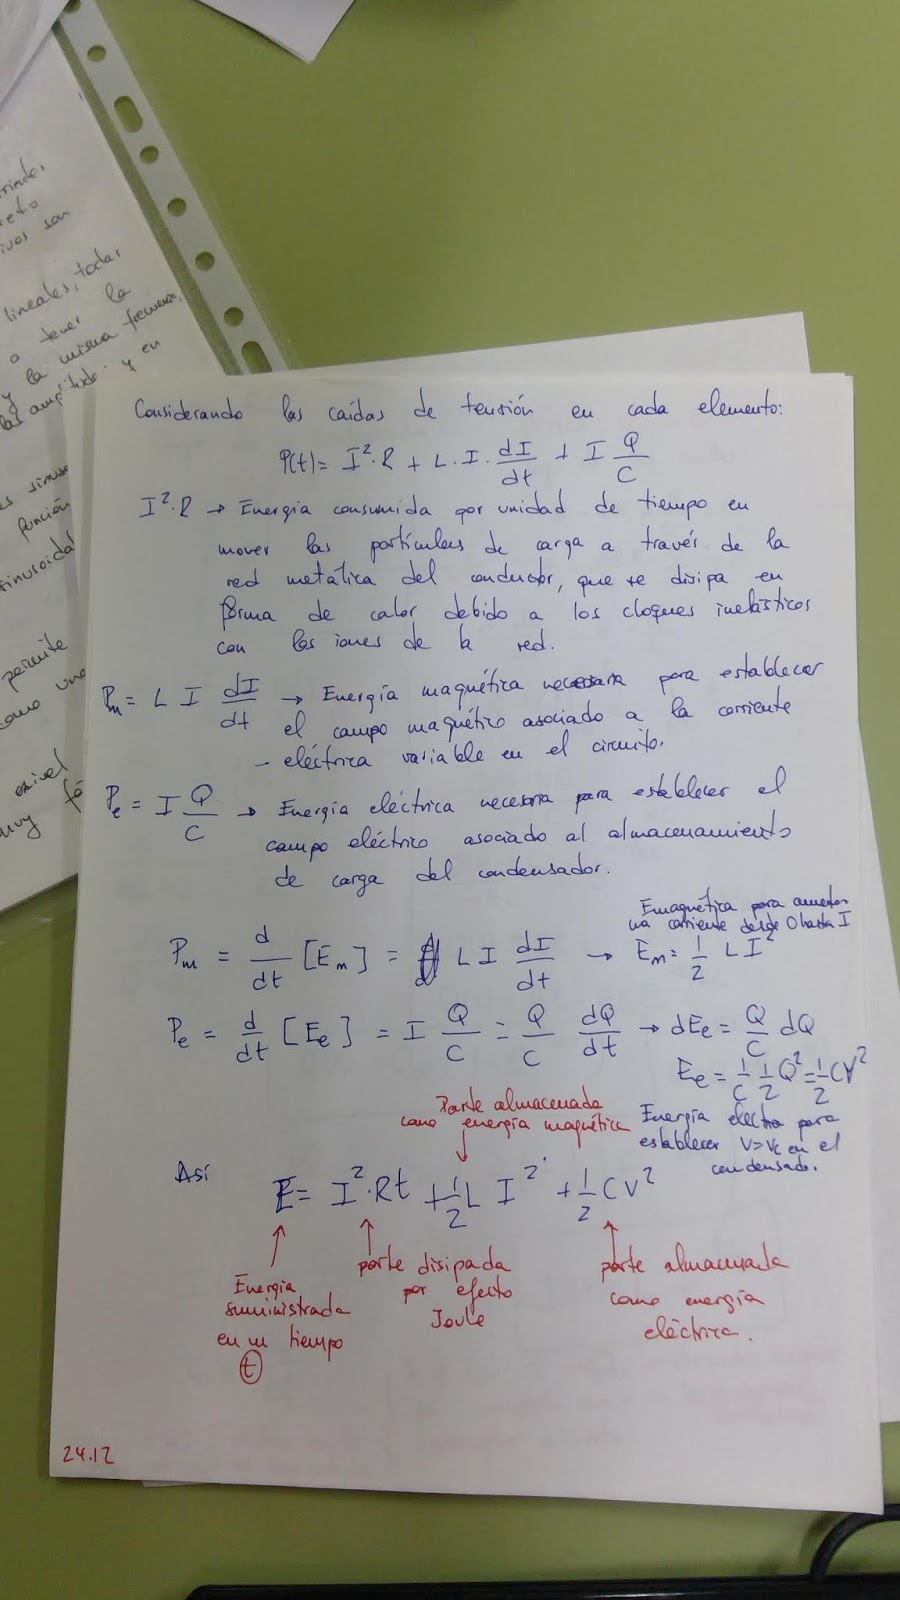 riente,
reto
ivos son
lineales, todas
a tener la
y la misma frecuencia,
las amplitudes y en
es sinuso
función
sinusoidal
permite
como una
nivel
muy fá
Considerando las caídas de tensión en cada elemento:
P(t)= I²·R + L·I·dI/dt + I Q/C
I²·R → Energía consumida por unidad de tiempo en
mover las partículas de carga a través de la
red metálica del conductor, que se disipa en
forma de calor debido a los choques inelásticos
con los iones de la red.
Pm = L I dI/dt → Energía magnética necesaria para establecer
el campo magnético asociado a la corriente
eléctrica variable en el circuito.
Pe = I Q/C → Energía eléctrica necesaria para establecer el
campo eléctrico asociado al almacenamiento
de carga del condensador.
Emagnética para aumentar
una corriente desde 0 hasta I
Pm = d/dt [Em] = L I dI/dt → Em = 1/2 L I²
Pe = d/dt [Ee] = I Q/C = Q/C dQ/dt → dEe = Q/C dQ
Ee = 1/C 1/2 Q² = 1/2 CV²
Parte almacenada
como energía magnética
Energía electra para
establecer V=Vc en el
condensado.
Así E = I²·Rt + 1/2 L I² + 1/2 CV²
Energía
suministrada
en un tiempo
t
parte disipada
por efecto
Joule
parte almacenada
como energía
eléctrica.
24.12